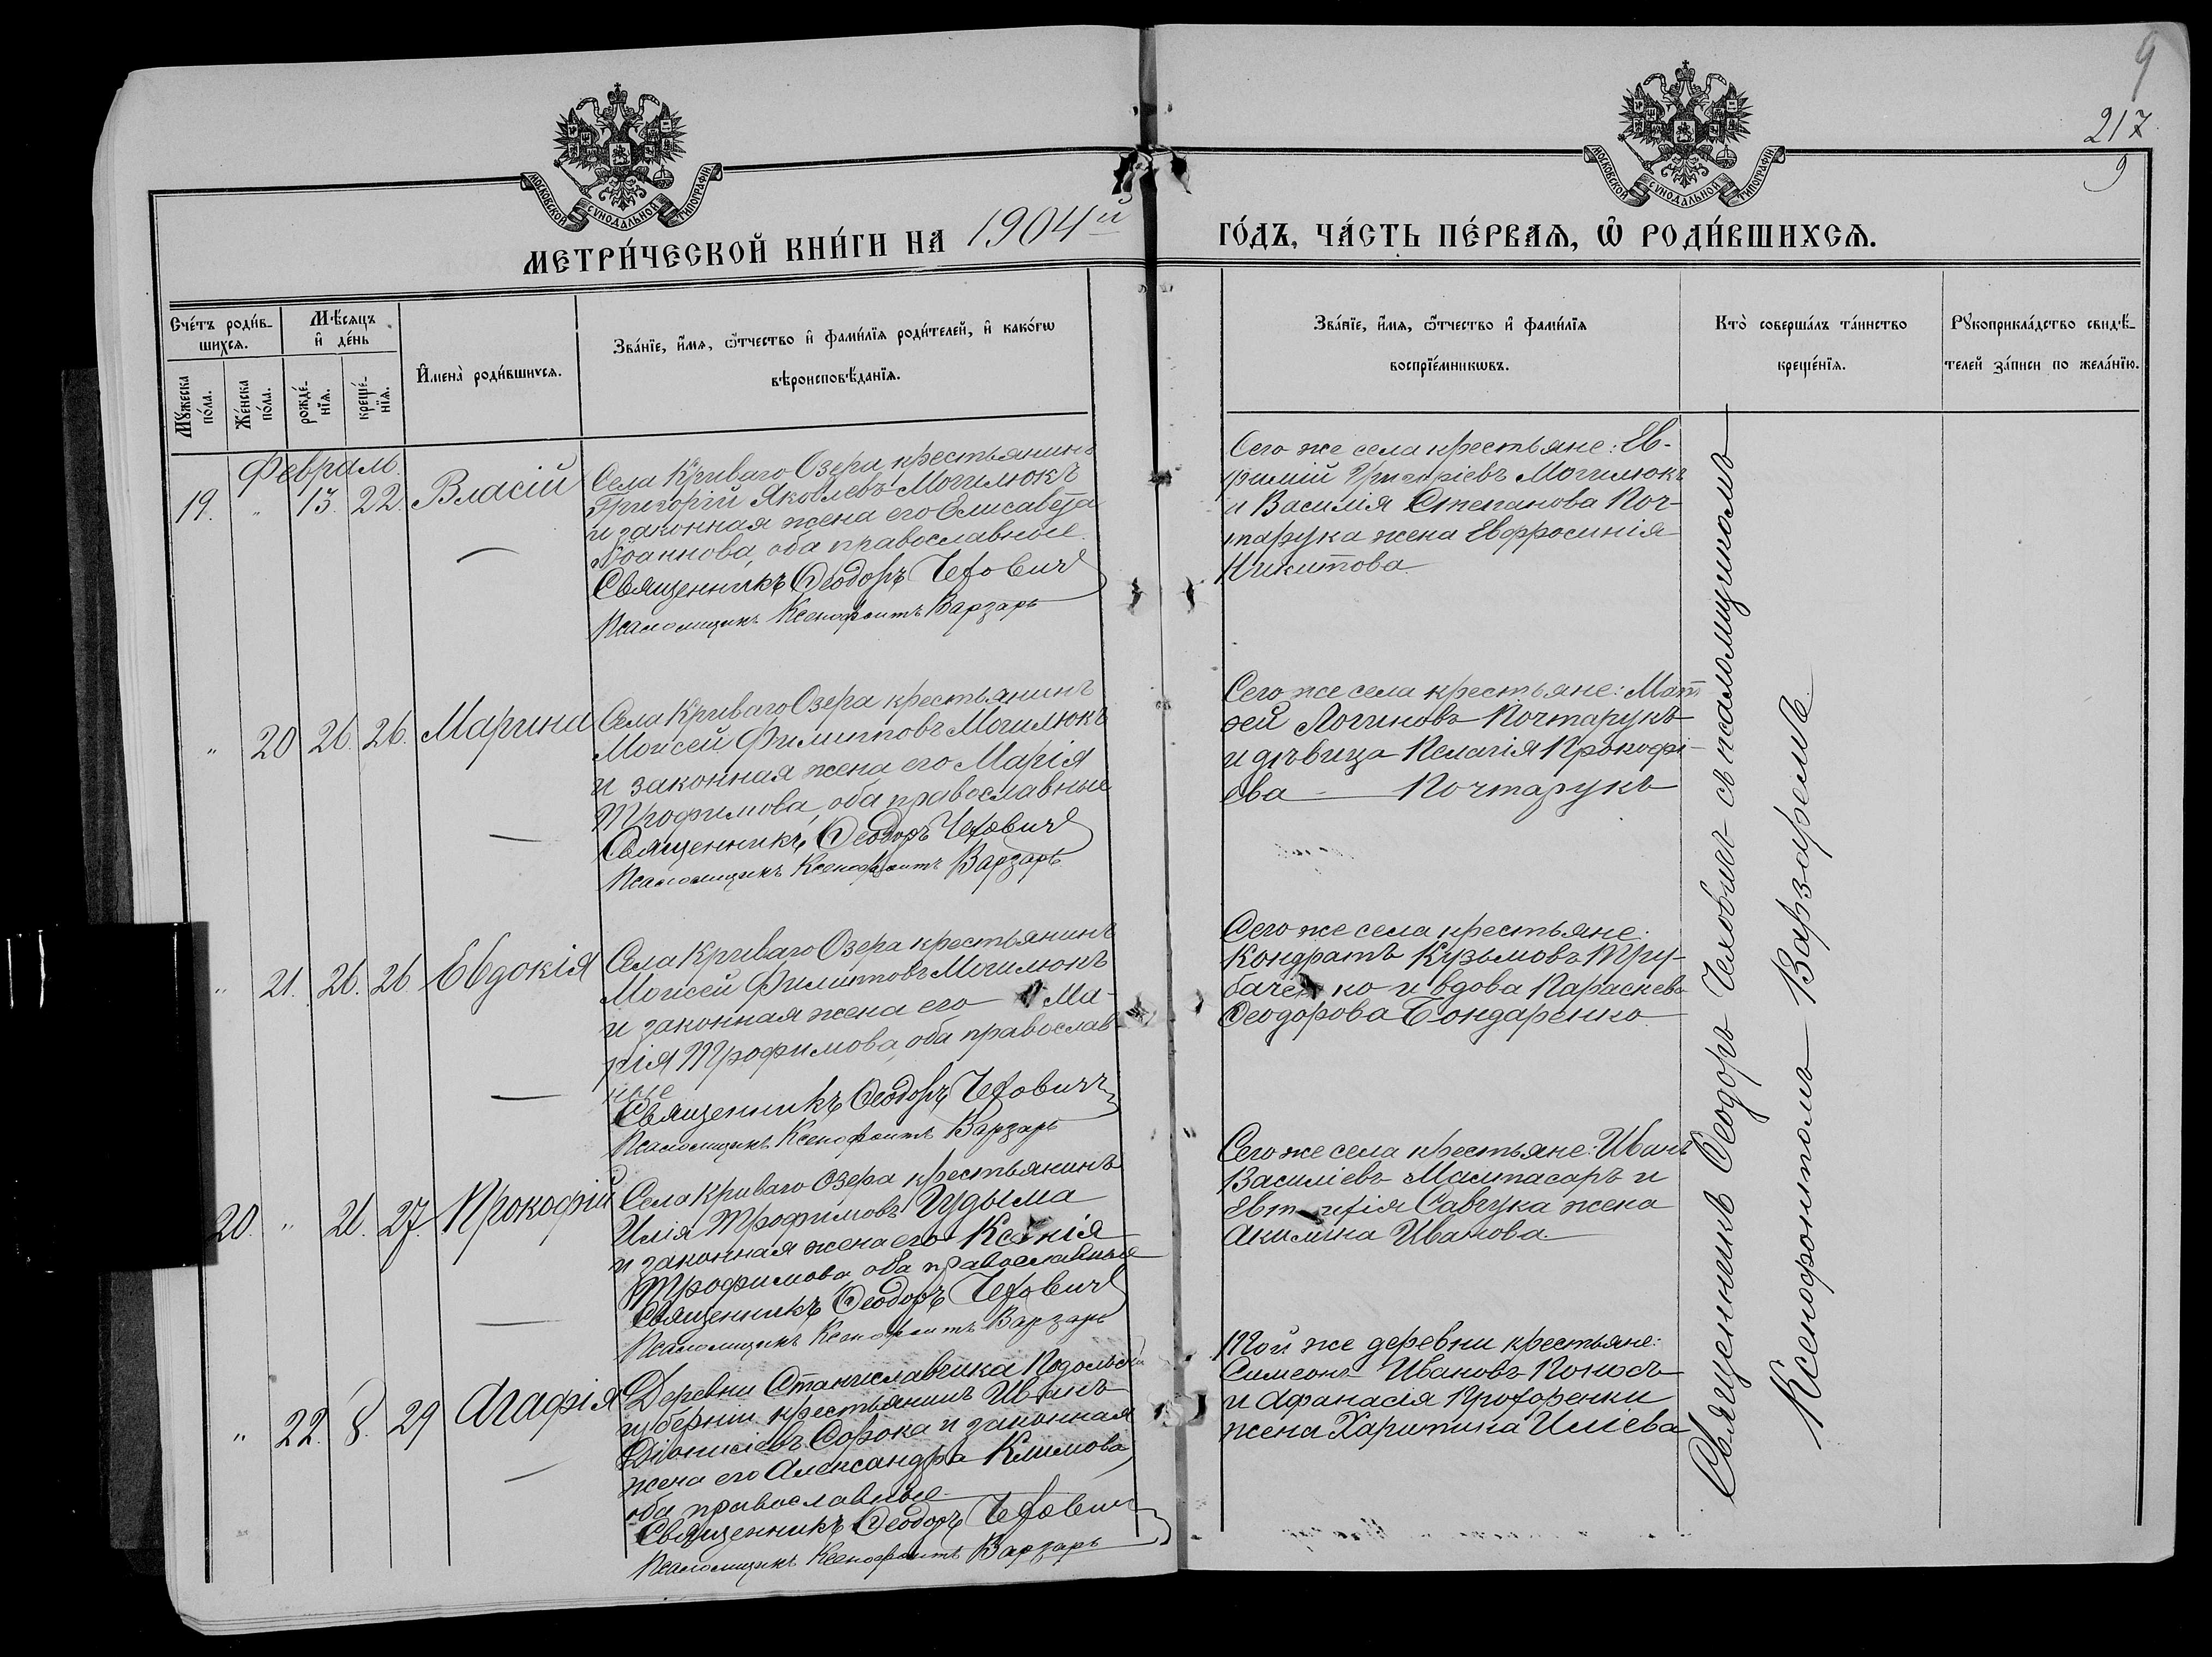 9
217
9
МОСКОВСКОЙ СУНОДАЛЬНОЙ ТИПОГРАФІИ
МОСКОВСКОЙ СУНОДАЛЬНОЙ ТИПОГРАФІИ
МЕТРИ́ЧЕСКОЙ КНИ́ГИ НА 1904й
ГО́ДЪ, ЧА́СТЬ ПЕ́РВАѦ, Ѡ҆ РОДИ́ВШИХСѦ.
Сче́тъ роди́в-
шихсѧ.
Мѣ́сѧцъ
и҆ де́нь
Мꙋ́жеска
по́ла.
Же́нска
по́ла.
рожде́-
нїѧ.
креще́-
нїѧ.
И҆мена̀ роди́вшихсѧ.
Зва́нїе, и҆́мѧ, ѻ҆́тчество и҆ фами́лїѧ роди́телей, и҆ како́гѡ
вѣроисповѣ́данїѧ.
Зва́нїе, и҆́мѧ, ѻ҆́тчество и҆ фами́лїѧ
воспрїе́мникѡвъ.
Кто̀ соверша́лъ та́инство
креще́нїѧ.
Рꙋкоприкла́дство свидѣ́-
телей за́писи по жела́нїю.
Февраль.
19. " 13. 22. Власій
Села Криваго Озера, крестьянинъ
Григорій Яковлевъ Могилюкъ
и законная жена его Елисавета
Іоаннова, оба православные.
Священникъ Ѳеодоръ Чеховичъ
Псаломщикъ Ксенофонтъ Варзарь
Сего же села крестьяне: Ев-
фимій Григоріевъ Могилюкъ
и Василія Степанова Поч-
тарука жена Евфросинія
Никитова.
" 20 26. 26. Марина
Села Криваго Озера крестьянинъ
Моисей Филипповъ Могилюкъ
и законная жена его Марія
Трофимова, оба православные
Священникъ Ѳеодоръ Чеховичъ
Псаломщикъ Ксенофонтъ Варзарь
Сего же села крестьяне: Мат-
ѳей Логиновъ Почтарукъ
и дѣвица Пелагія Прокофі-
ева Почтарукъ
" 21. 26. 26 Евдокія
Села Криваго Озера крестьянинъ
Моисей Филипповъ Могилюкъ
и законная жена его Ма-
рія Трофимова, оба православ-
ные
Священникъ Ѳеодоръ Чеховичъ
Псаломщикъ Ксенофонтъ Варзарь
Сего же села крестьяне:
Кондратъ Кузьмовъ Тру-
баченко и вдова Параскева
Ѳеодорова Бондаренко
20. " 26. 27. Прокофій
Села Криваго Озера крестьянинъ
Илія Трофимовъ Гудыма
и законная жена его Ксенія
Трофимова, оба православные
Священникъ Ѳеодоръ Чеховичъ
Псаломщикъ Ксенофонтъ Варзарь
Сего же села крестьяне: Иванъ
Василіевъ Малтасаръ и
Савчука жена
Акилина Иванова.
" 22. 8. 29 Агафія
Деревни Станиславчика Подольской
губерніи крестьянинъ Иванъ
Діонисіевъ Сорока и законная
жена его Александра Климова,
оба православные
Священникъ Ѳеодоръ Чеховичъ
Псаломщикъ Ксенофонтъ Варзарь
Той же деревни крестьяне:
Симеонъ Ивановъ
и Афанасія Прохоренки
жена Харитина Иліева
Священникъ Ѳеодоръ Чеховичъ съ псаломщикомъ
Ксенофонтомъ Варзаремъ.